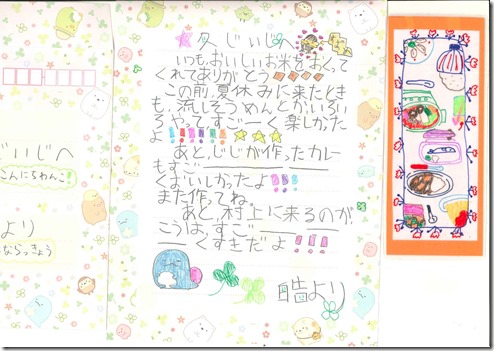 いじへ
こんにちわんこ
より
ならっきょう
じいじへ
いつもおいしいお米をおくって
くれてありがとう
この前、夏休みに来たとき
も、流しそうめんとかいろい
ろやって、すごーく楽しかった
よ!!!!!!
あと、じじが作ったカレー
もすごーーー
くおいしかったよ!!!
また作ってね。
あと、村上に来るのが
こうは、すごーー
ーーくすきだよ!!!
皓より